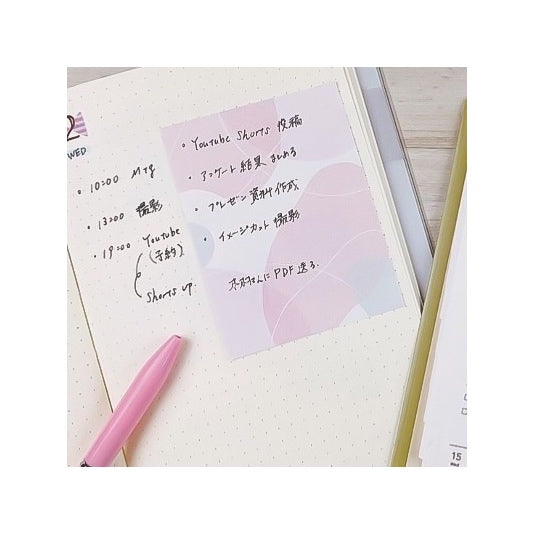 2
WED
• 10:00 Mtg
• 13:00 撮影
• 19:00 Youtube
(予約)
Shorts up
• Youtube Shorts 投稿
• アンケート結果まとめる
• プレゼン資料作成
• イメージカット撮影
さんにPDF送る.
15